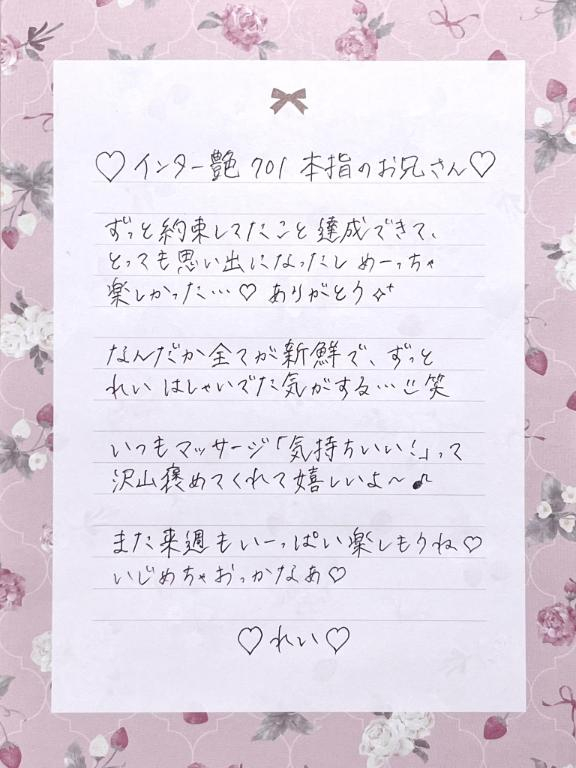 ♡インター艶 701 本指のお兄さん♡
ずっと約束してたこと達成できて、
とっても思い出になったし めーっちゃ
楽しかった…♡ ありがとう✧⁺
なんだか全てが新鮮で、ずっと
れい はしゃいでた気がする…笑
いつもマッサージ「気持ちいい！」って
沢山褒めてくれて嬉しいよ〜♪
また来週もいーっぱい楽しもうね♡
いじめちゃおっかなあ♡
♡れい♡